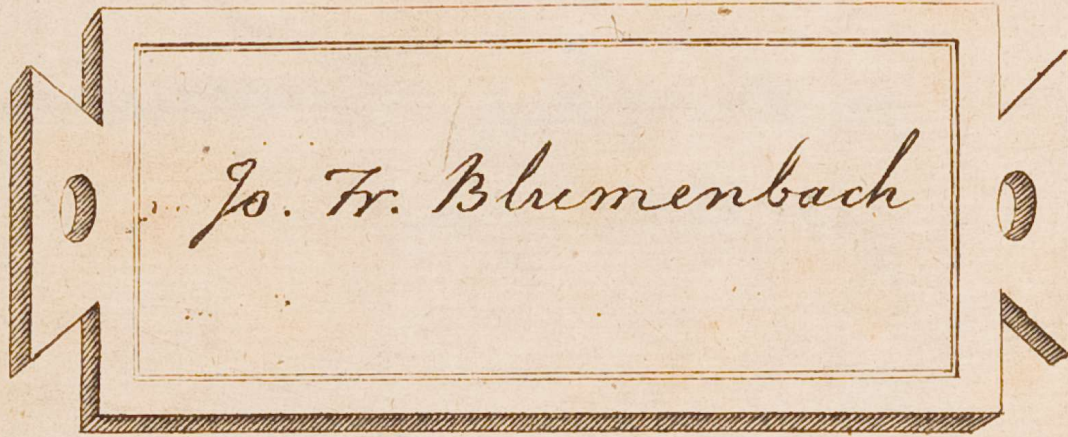 Jo. Fr. Blumenbach